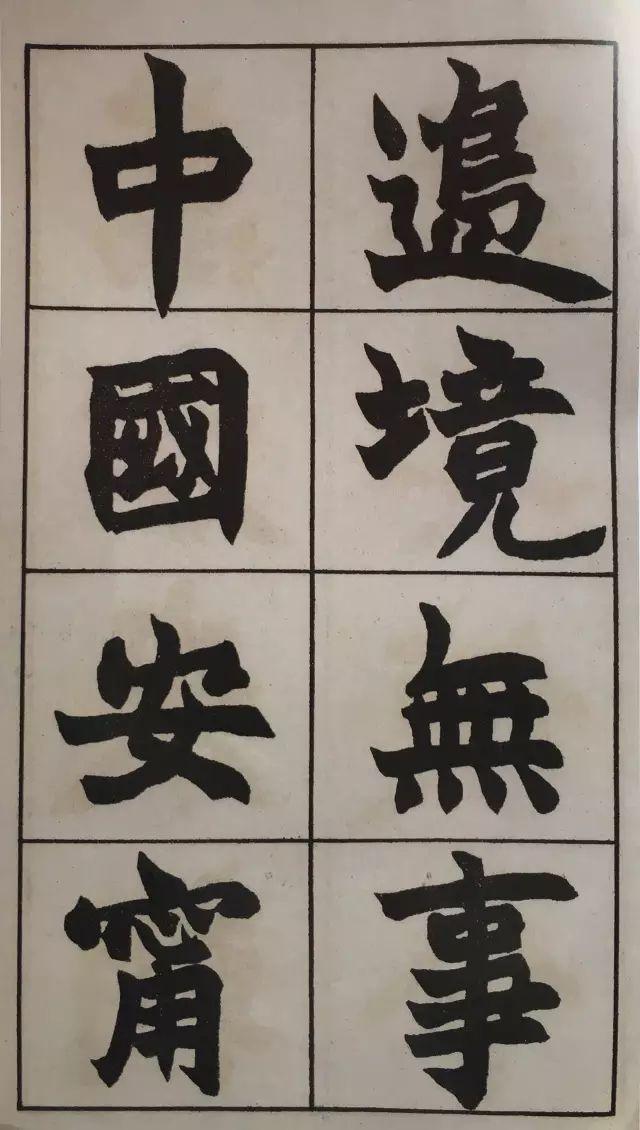 邉境無事
中國安甯